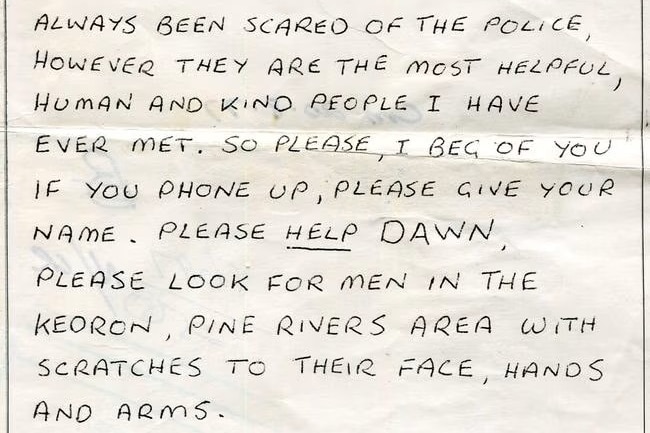 ALWAYS BEEN SCARED OF THE POLICE,
HOWEVER THEY ARE THE MOST HELPFUL,
HUMAN AND KIND PEOPLE I HAVE
EVER MET. SO PLEASE, I BEG OF YOU
IF YOU PHONE UP, PLEASE GIVE YOUR
NAME. PLEASE HELP DAWN,
PLEASE LOOK FOR MEN IN THE
KEDRON, PINE RIVERS AREA WITH
SCRATCHES TO THEIR FACE, HANDS
AND ARMS.